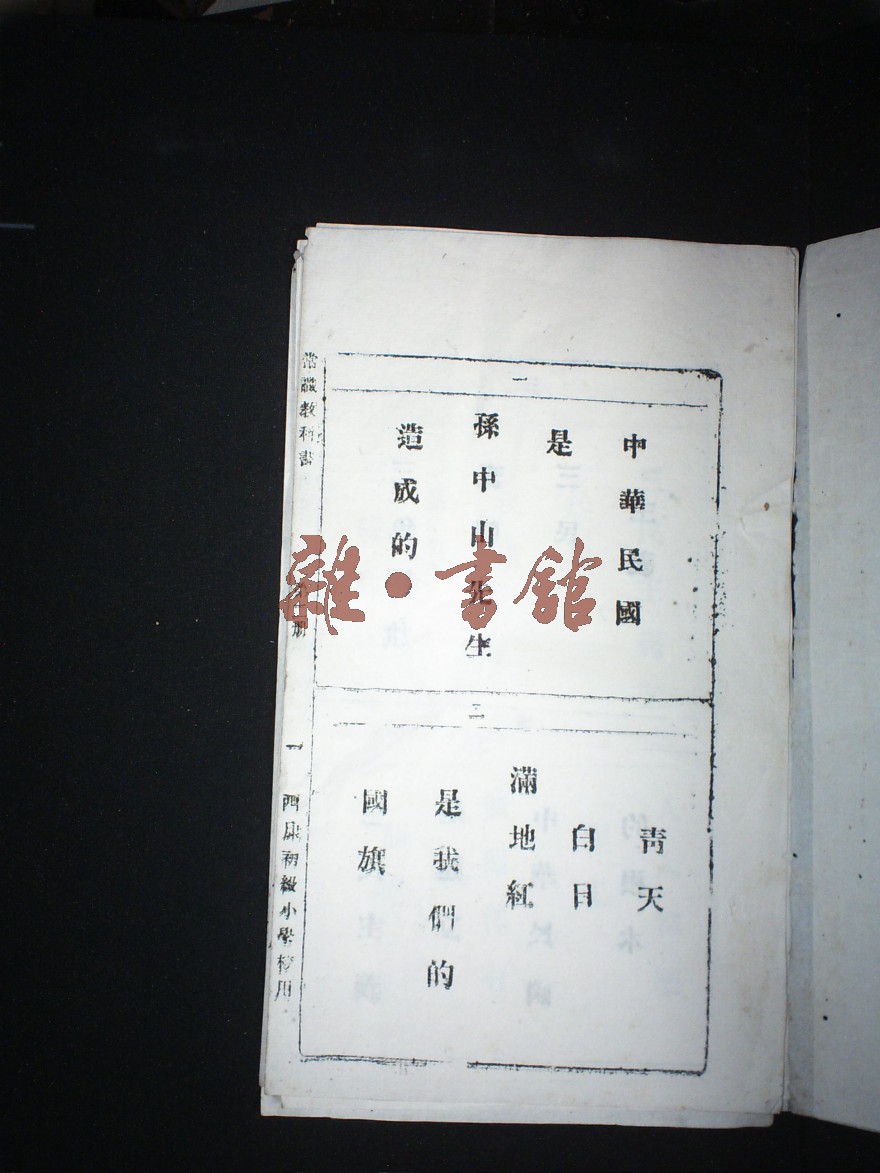 一
中華民國
是
孫中山先生
造成的
二
青天
白日
滿地紅
是我們的
國旗
常識教科書
一
西康初級小學校用
雜•書館